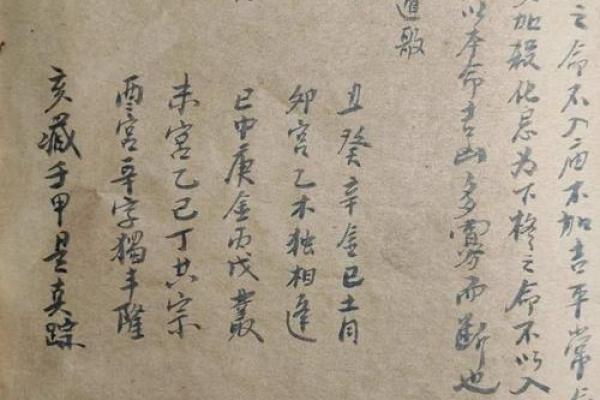 之命不入庙不加吉平常
加殺化忌為下格之命不以入
以本命吉凶多寡而断也
遁歌
丑癸辛金己土同
卯宫乙木独相逢
巳中庚金丙戊叢
未宫乙己丁共宗
酉宫辛字獨丰隆
亥藏壬甲是真踪